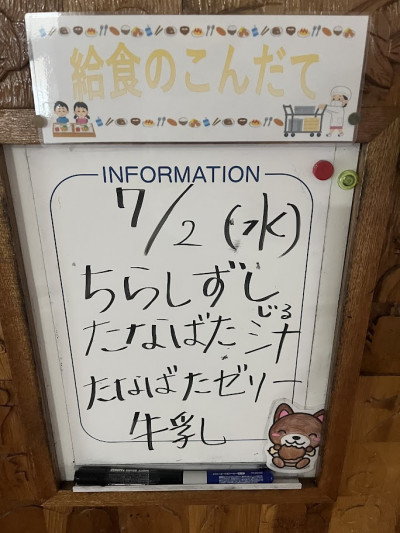 給食のこんだて
INFORMATION
7/2 (水)
ちらしずし
たなばた汁
じる
たなばたゼリー
牛乳